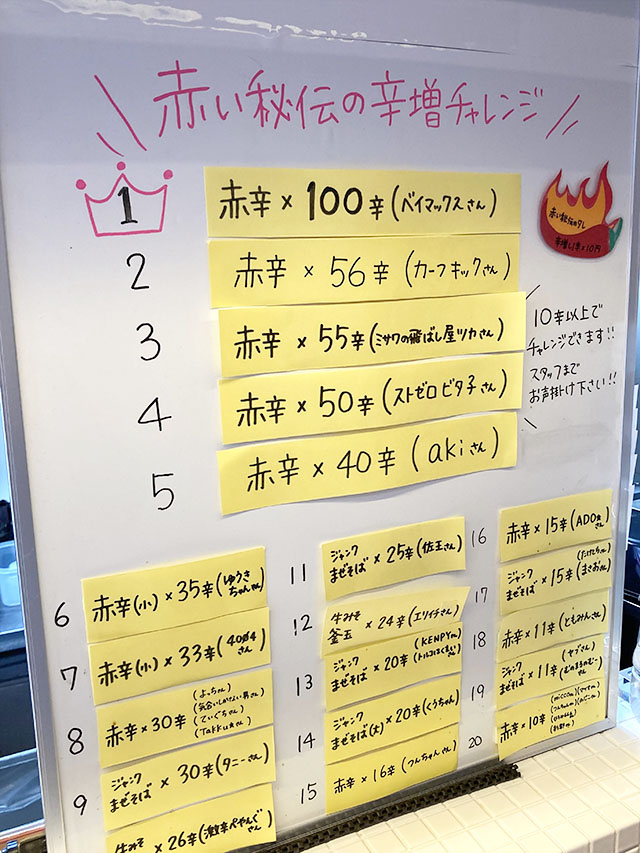 赤い秘伝の辛増チャレンジ
1 赤辛 × 100辛 (ベイマックスさん)
2 赤辛 × 56辛 (カーフキックさん)
3 赤辛 × 55辛 (ミサワの飛ばし屋ツカさん)
4 赤辛 × 50辛 (ストゼロビタ子さん)
5 赤辛 × 40辛 (akiさん)
赤い秘伝のタレ
辛増し1辛×10円
10辛以上で
チャレンジできます!!
スタッフまで
お声掛け下さい!!
6 赤辛(小) × 35辛 (ゆうきちゃんさん)
7 赤辛(小) × 33辛 (4004さん)
8 赤辛 × 30辛
(よっちゃん)
(ていぐちゃん)
9 ジャンクまぜそば × 30辛 (タニーさん)
生みそ × 26辛 (激辛ぺやんぐさん)
11 ジャンクまぜそば × 25辛 (佐王さん)
12 生みそ釜玉 × 24辛 (エリイチさん)
13 ジャンクまぜそば × 20辛
(KENPYさん)
14 ジャンクまぜそば(大) × 20辛 (くうちゃん)
15 赤辛 × 16辛 (つんちゃんさん)
16 赤辛 × 15辛
17 ジャンクまぜそば × 15辛
(まさおさん)
18 赤辛 × 11辛 (ともみんさん)
19 ジャンクまぜそば × 11辛
20 赤辛 × 10辛